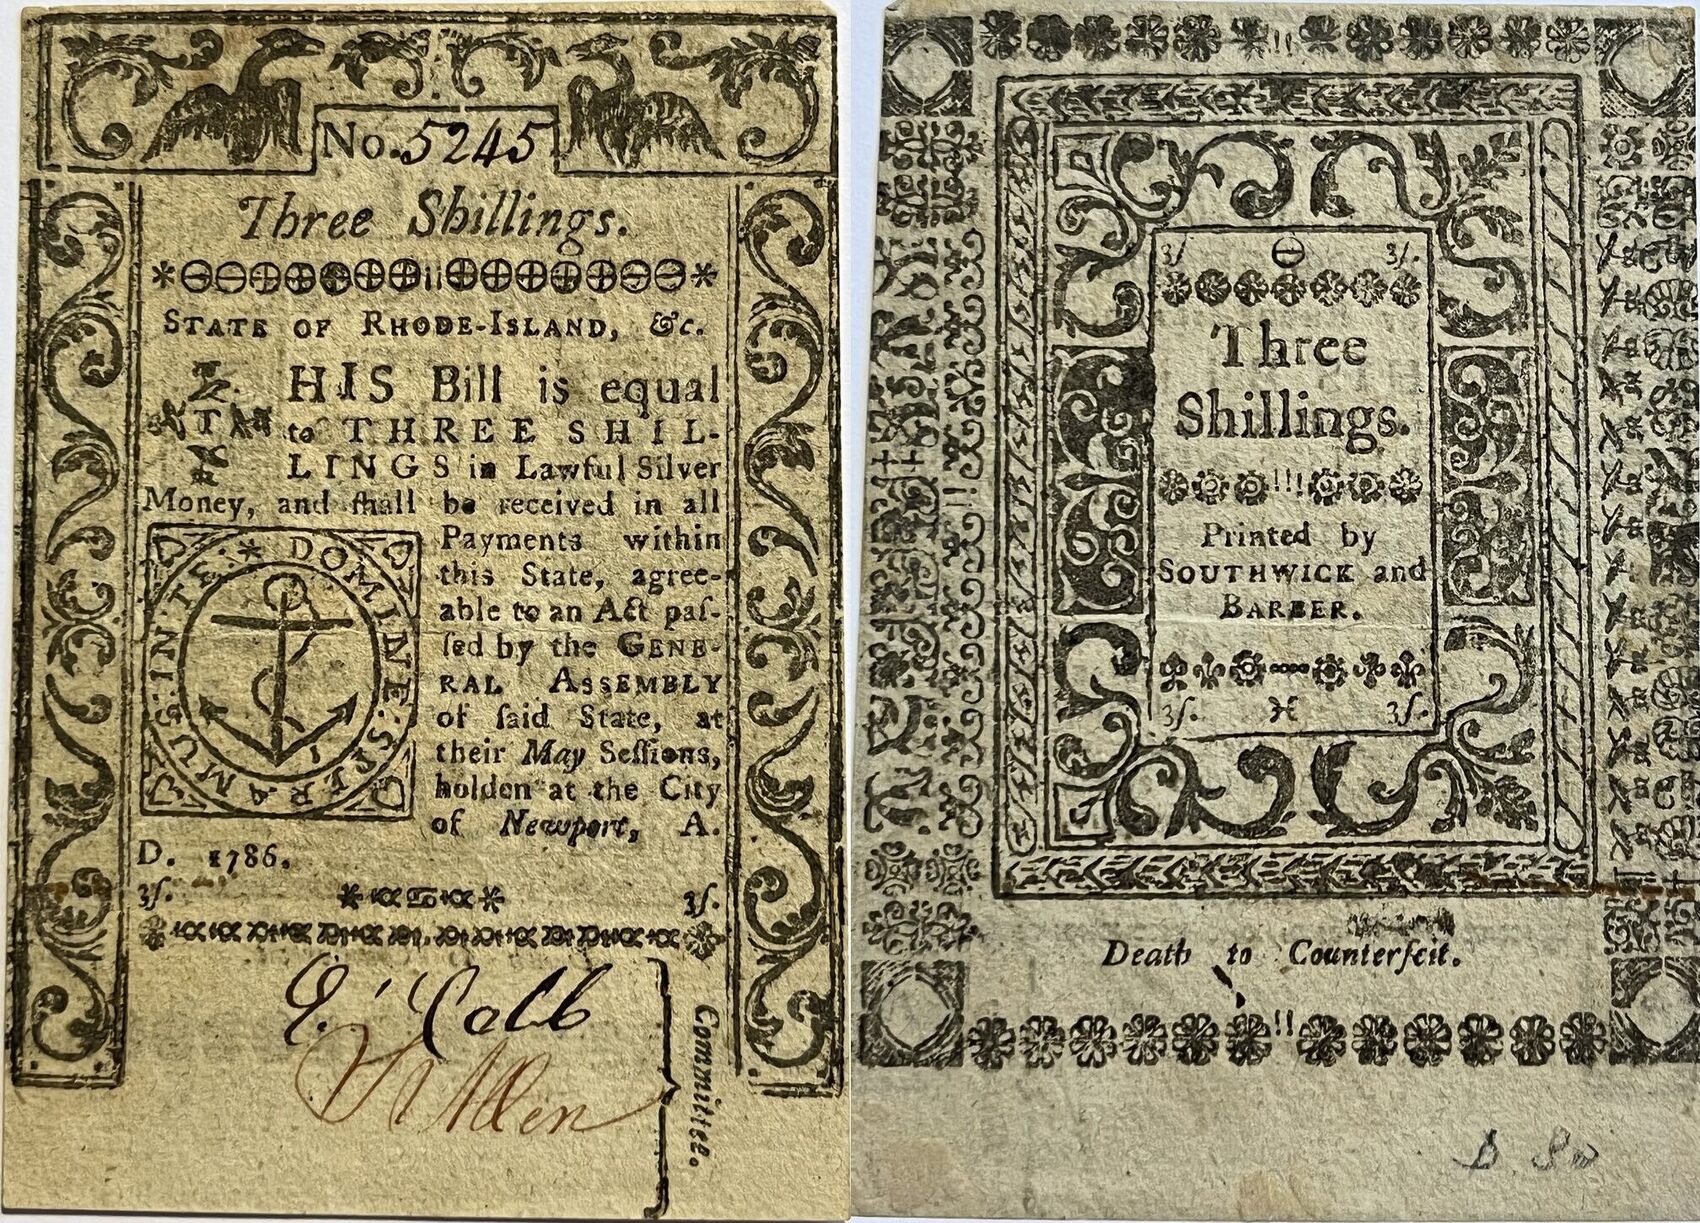 No. 5245
Three Shillings.
STATE OF RHODE-ISLAND, &c.
THIS Bill is equal
to THREE SHIL-
LINGS in Lawful Silver
Money, and ſhall be received in all
Payments within
this State, agree-
able to an Act paſ-
ſed by the GENE-
RAL ASSEMBLY
of ſaid State, at
their May Seſſions,
holden at the City
of Newport, A.
D. 1786.
IN TE DOMINE SPERAMUS
3ſ. 3ſ.
Committee.
N Allen
3ſ. 3ſ.
Three
Shillings.
Printed by
SOUTHWICK and
BARBER.
3ſ. 3ſ.
Death to Counterfeit.